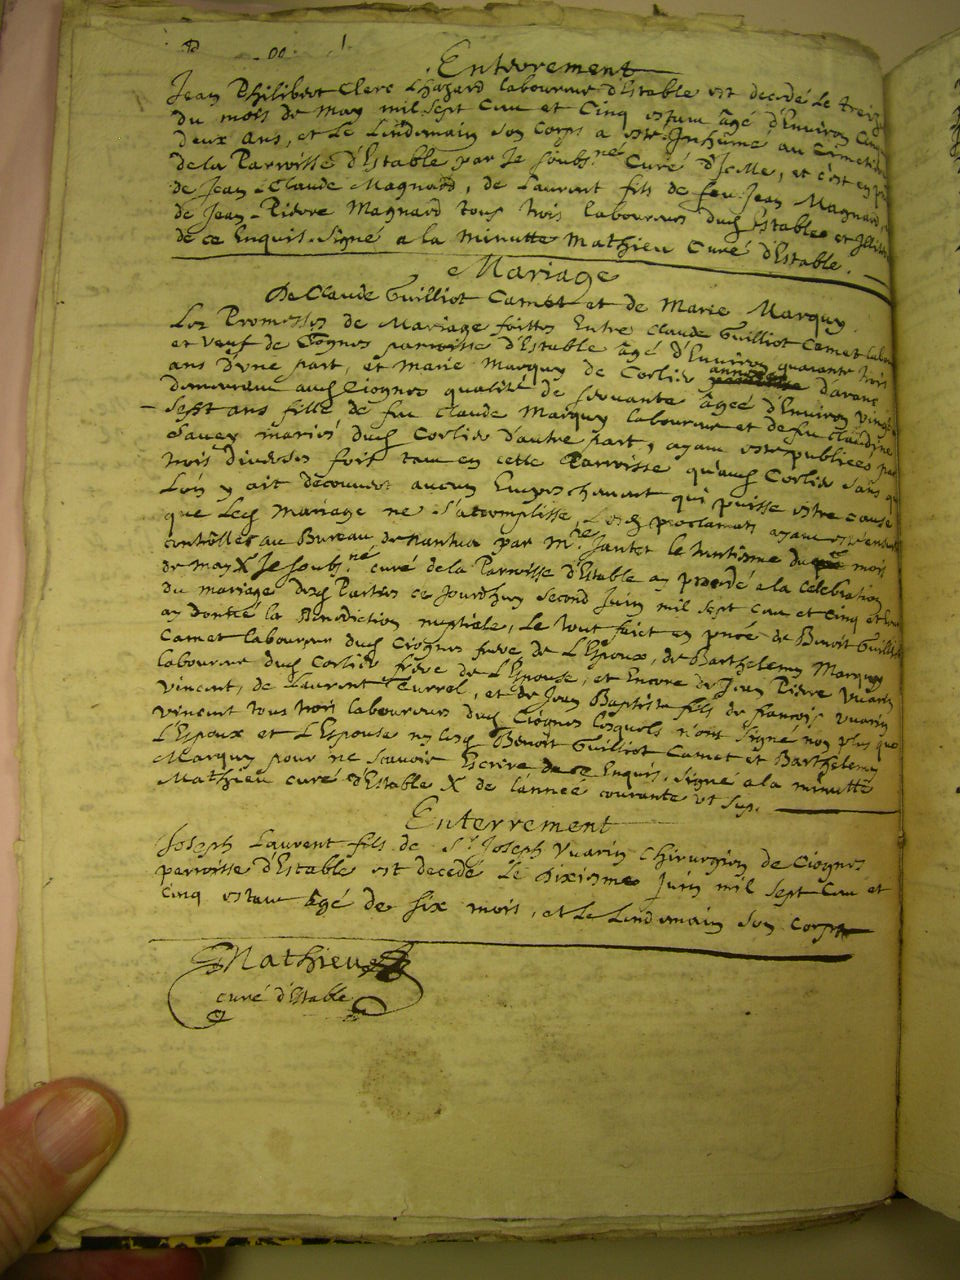 Enterrement
Jean Philibert Clerc Chazard laboureur d'Estable est decedé le
du mois de may mil sept cau et Cinq estau âgé d'Environ Cinq
deux ans, et Le Lindemain son Corps a este Inhumé au
de la Parroisse d'Estable par Je soubs.né Curé d'Icelle, et c'est en
de Jean-Claude Magnard, de Laurent fils de feu Jean Magnard
de Jean-Pierre Magnard tous trois laboureurs dud Estable et
de ce Enquis. Signé a la minutte Mathieu Curé d'Estable.
Mariage
De Claude Guilliot Camet et de Marie Marquy
Les Promesses de Mariage faittes Entre Claude Guilliot Camet
et veuf de Ciognes parroisse d'Estable âgé d'Environ quarante trois
ans D'vne part, et Marie Marquy de Corlier
demeurau aud Ciognes qualité de servante âgeé d'Environ vingt
Sept ans fille de feu Claude Marquy laboureur et de fu Claudine
mariés dud Corlier d'autre part, ayau este publiees par
trois diverses fois tau en cette Parroisse qu'aud Corlier sans
Lon y ait découvert aucun Empeschement qui puisse estre cause
que Led Mariage ne s'accomplisse, Lesd proclamats ayau
controllés au Bureau de Nantua par M.re Jantet le huitieme du mois
de may X Je soubs.né curé de la Parroisse d'Estable ay procedé a la Celebration
du mariage desd Parties ce Jourdhuy second Juin mil sept Cau et Cinq et leur
ay donneé la Benediction nuptiale, Le tout faict en pnce de Benoit Guilliot
Camet laboureur dud Ciognes frere de L'Epoux, de Barthelemy Marquy
laboureur dud Corlier frere de L'Epouse, et Encore de Jean Pierre Vuarin
vincent, de Laurent, et de Jean Baptiste fils de francois vuarin
vincent tous trois laboureurs dud Ciognes lesquels n'ont signé non plus que
L'Epoux et L'Epouse ny lesd Benoit Guilliot Camet et Barthelemy
Marquy pour ne scavoir Escrire de ce Enquis. Signé a la minutte
Mathieu curé d'Estable X de l'anneé courante vt sup.
Enterrement
Joseph Laurent fils de S.r Joseph Vuarin Chirurgien de Ciognes
parroisse d'Estable est decedé Le sixieme Juin mil sept Cau et
Cinq estau âgé de six mois, et Le Lindemain son corps
Mathieu
curé d'Estable